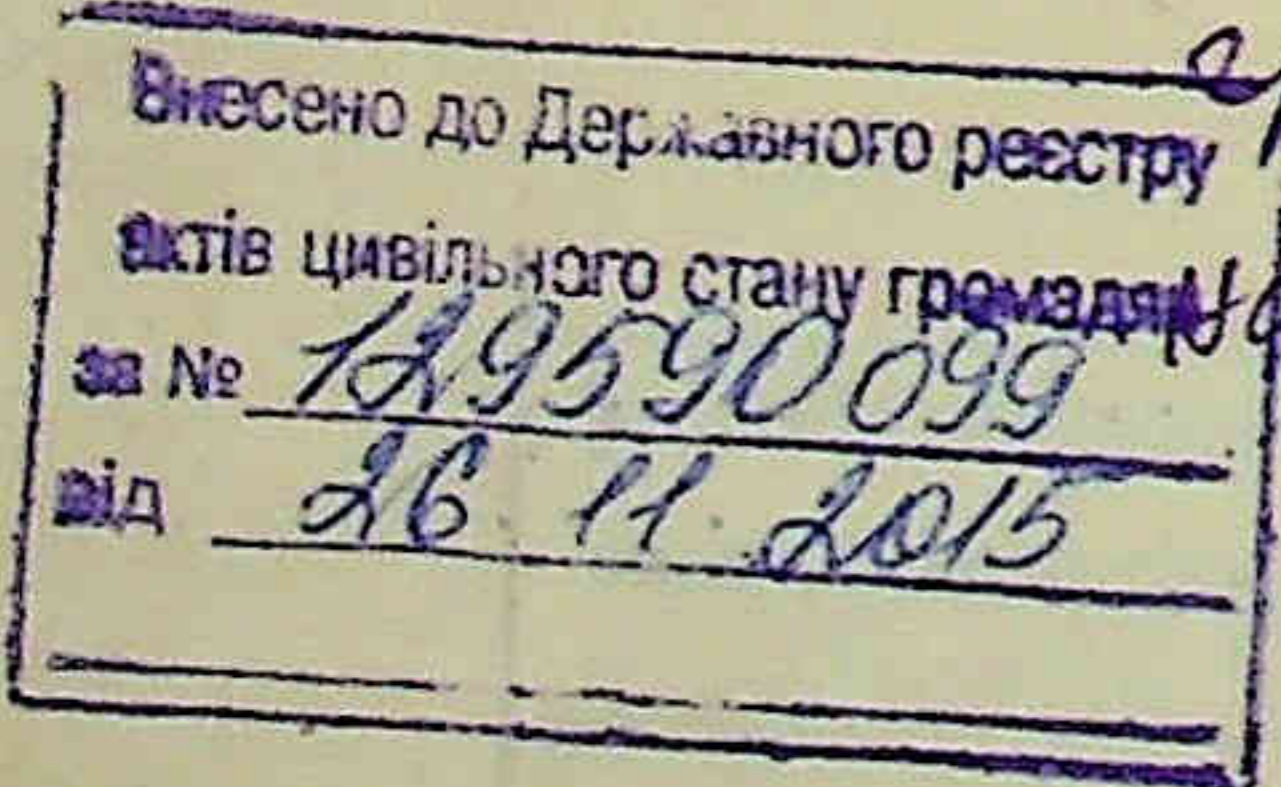 Внесено до Державного реєстру
актів цивільного стану громадян
за № 129590099
від 26 11. 2015